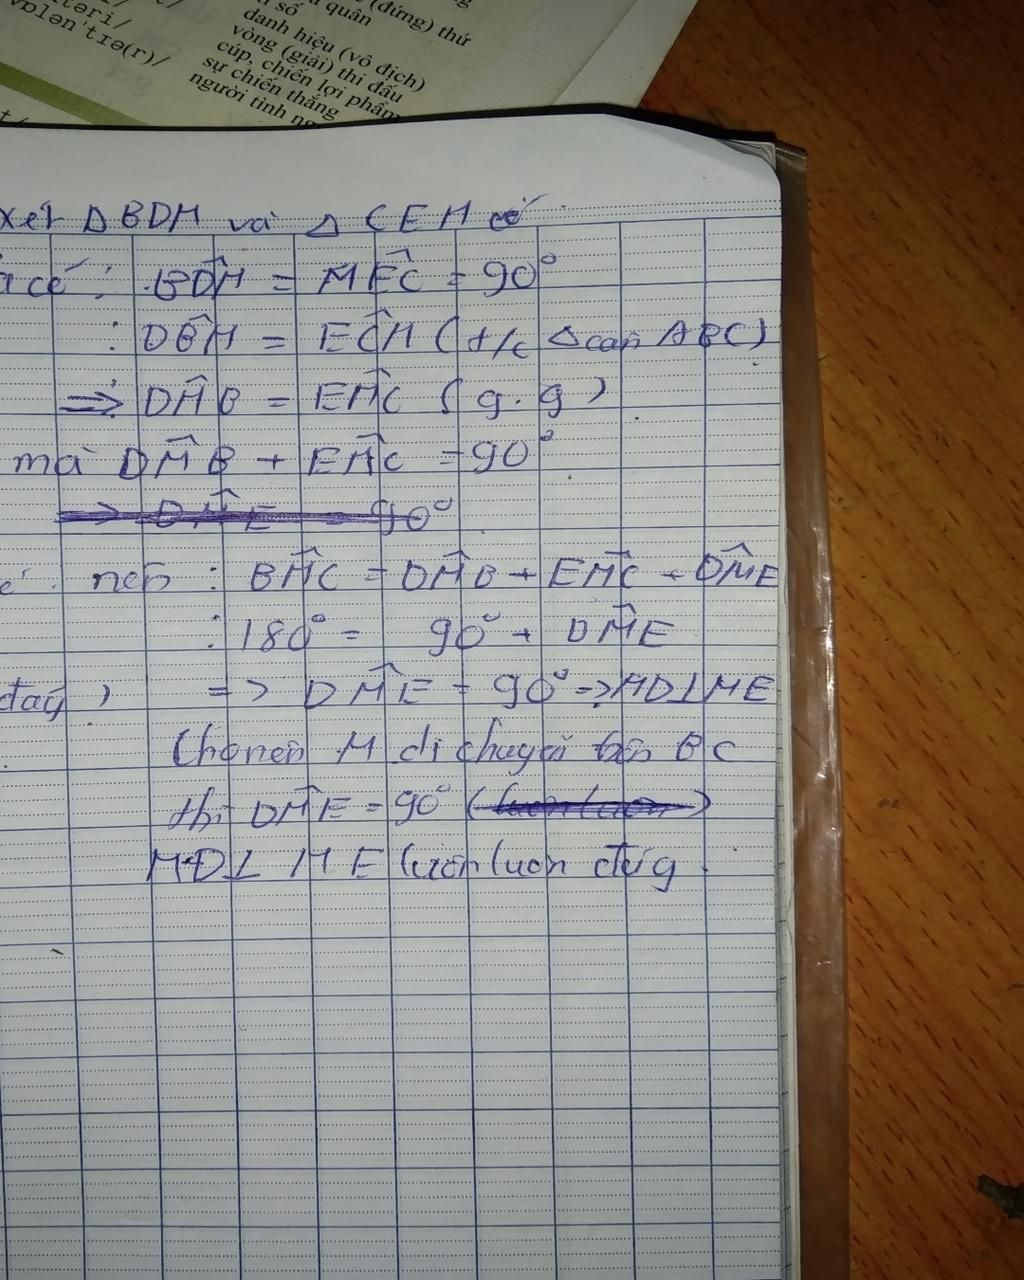 təri/
vɒlən'tɪə(r)/
(đứng) thứ
quân
số
danh hiệu (vô địch)
vòng (giải) thi đấu
cúp, chiến lợi phẩm
sự chiến thắng
người tình ng
xét ΔBDM và ΔCEM có
có : BDM = MEC = 90°
: DBM = ECM (t/c Δ cân ABC)
=> DMB = EMC (g.g)
mà DMB + EMC = 90°
=> DME = 90°
nên : BMC = DMB + EMC + DME
: 180° = 90° + DME
đáy) => DME = 90° => MD⊥ME
Cho nên M di chuyển trên BC
thì DME = 90° (luôn luôn)
MD⊥ ME luôn luôn đúg.